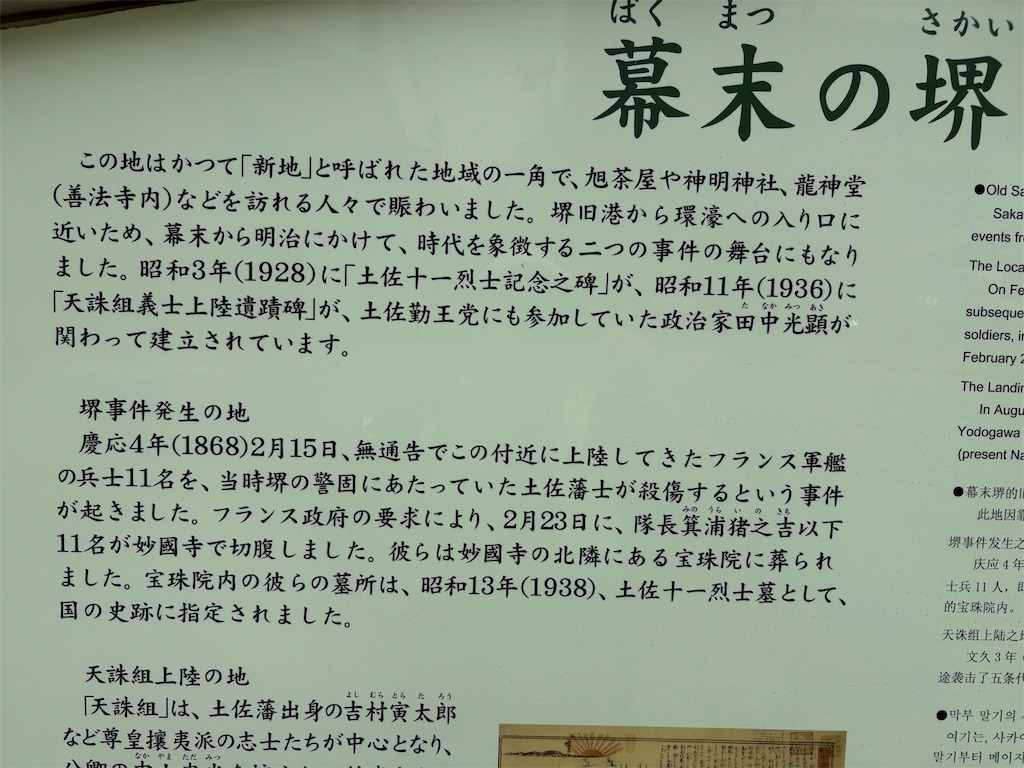 ばく まつ さかい
幕末の堺
この地はかつて「新地」と呼ばれた地域の一角で、旭茶屋や神明神社、龍神堂
(善法寺内)などを訪れる人々で賑わいました。堺旧港から環濠への入り口に
近いため、幕末から明治にかけて、時代を象徴する二つの事件の舞台にもなり
ました。昭和3年(1928)に「土佐十一烈士記念之碑」が、昭和11年(1936)に
た なか みつ あき
「天誅組義士上陸遺蹟碑」が、土佐勤王党にも参加していた政治家田中光顕が
関わって建立されています。
堺事件発生の地
慶応4年(1868)2月15日、無通告でこの付近に上陸してきたフランス軍艦
の兵士11名を、当時堺の警固にあたっていた土佐藩士が殺傷するという事件
みの うら い の きち
が起きました。フランス政府の要求により、2月23日に、隊長箕浦猪之吉以下
11名が妙國寺で切腹しました。彼らは妙國寺の北隣にある宝珠院に葬られ
ました。宝珠院内の彼らの墓所は、昭和13年(1938)、土佐十一烈士墓として、
国の史跡に指定されました。
天誅組上陸の地
よし むら とら た ろう
「天誅組」は、土佐藩出身の吉村寅太郎
など尊皇攘夷派の志士たちが中心となり、
なか やま ただ みつ
●Old Sa
Saka
events fr
The Loca
On Fe
subseque
soldiers, i
February 2
The Landin
In Augu
Yodogawa
(present Na
●幕末堺的旧
此地因靠
堺事件发生之
庆应4年
士兵11人，
的宝珠院内。
天诛组上陆之地
文久3年
途袭击了五条代
●막부 말기의
여기는, 사카이
말기부터 메이지